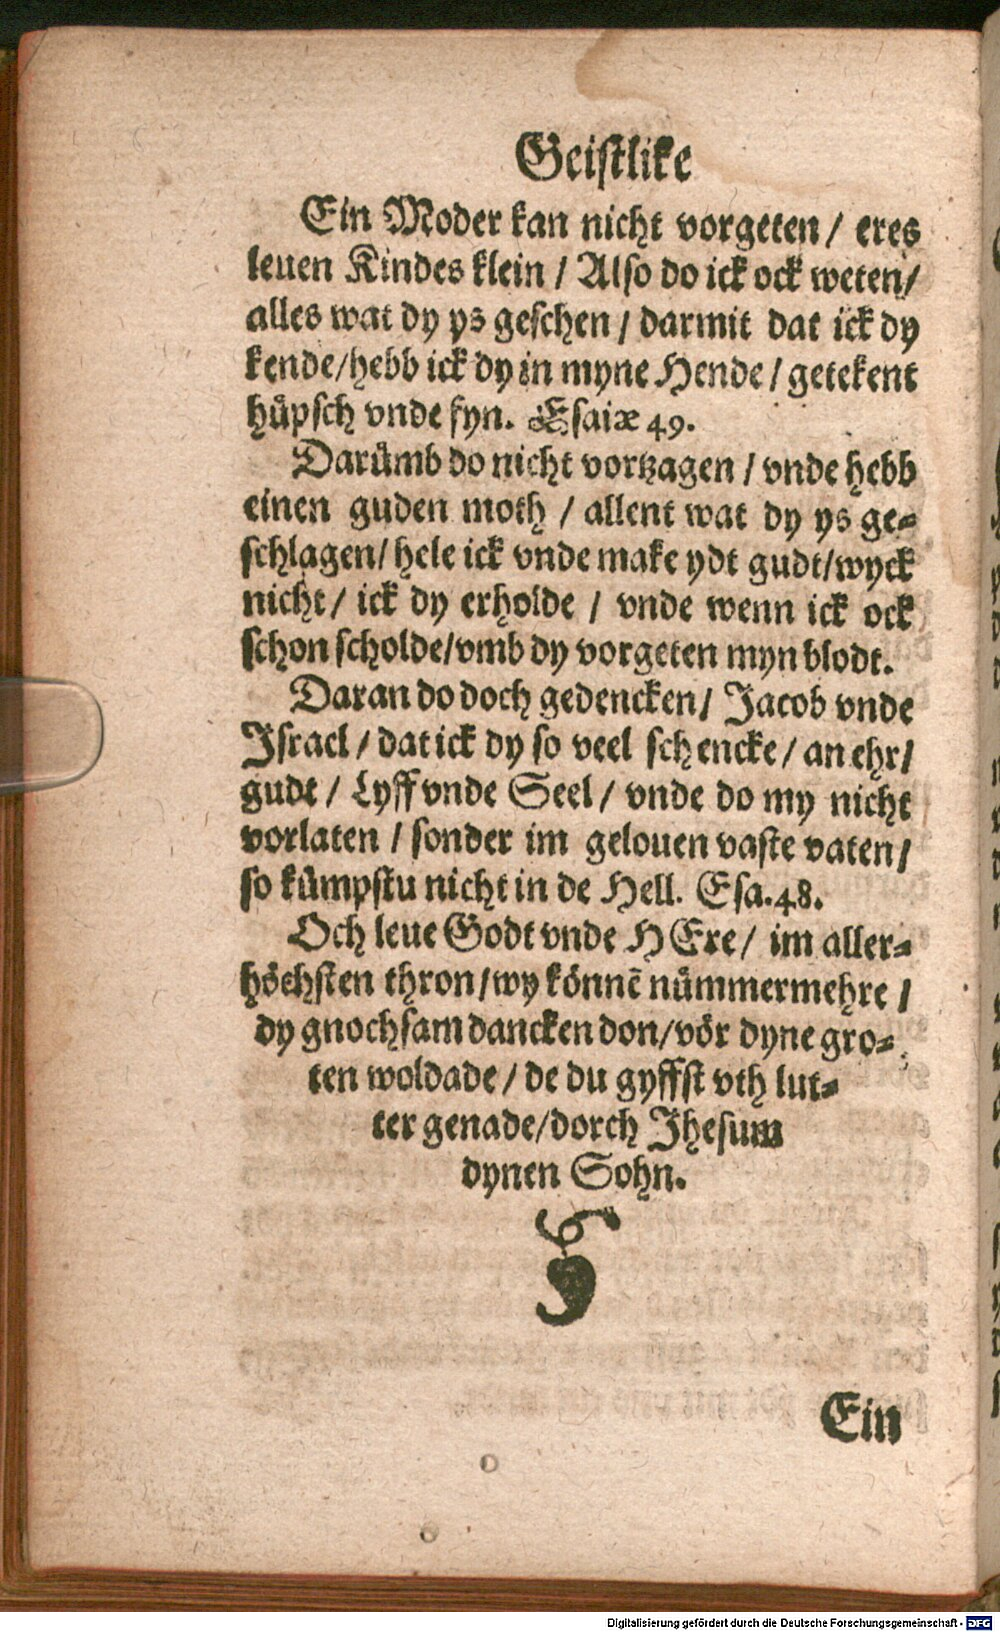 Geistlike
Ein Moder kan nicht vorgeten / eres
leuen Kindes klein / Also do ick ock weten/
alles wat dy ys geschen / darmit dat ick dy
kende/hebb ick dy in myne Hende / getekent
hüpsch vnde fyn. Esaiæ 49.
Darümb do nicht vortzagen / vnde hebb
einen guden moth / allent wat dy ys ge-
schlagen/ hele ick vnde make ydt gudt/wyck
nicht/ ick dy erholde / vnde wenn ick ock
schon scholde/vmb dy vorgeten myn blodt.
Daran do doch gedencken/ Jacob vnde
Israel / dat ick dy so veel schencke / an ehr/
gudt / Lyff vnde Seel / vnde do my nicht
vorlaten / sonder im gelouen vaste vaten/
so kümpstu nicht in de Hell. Esa.48.
Och leue Godt vnde HEre/ im aller-
höchsten thron/wy könnē nümmermehre /
dy gnochsam dancken don/vör dyne gro-
ten woldade / de du gyffst vth lut-
ter genade/dorch Jhesum
dynen Sohn.
Ein
Digitalisierung gefördert durch die Deutsche Forschungsgemeinschaft - DFG